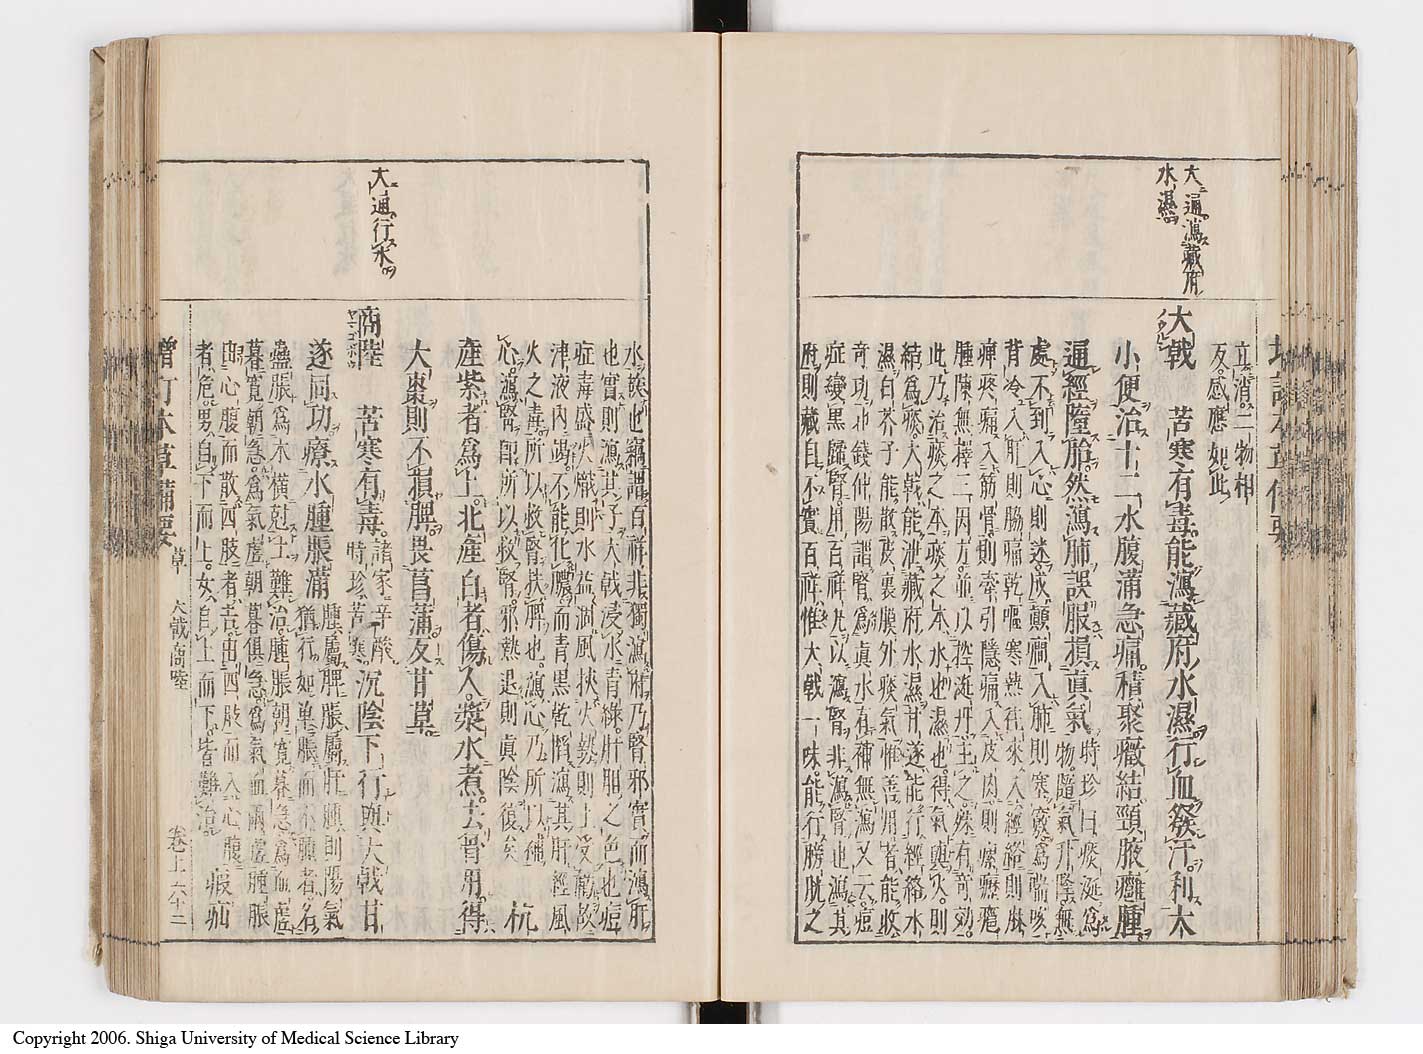 立消二物相
反感應如此
大通瀉藏府
水濕
大戟　苦寒有毒能瀉藏府水濕行血發汗利大
小便治十二水腹滿急痛積聚癥結頸腋癰腫
通經墮胎然瀉肺誤服損眞氣
時珍曰痰涎爲
物隨氣升降無
處不到入心則迷成顛癇入肺則塞竅爲喘咳
背冷入肝則脇痛乾嘔寒熱往來入經絡則麻
痺疼痛入筋骨則牽引隱痛入皮肉則瘰癧癰
腫陳無擇三因方並以控涎丹主之殊有奇効
此乃治痰之本痰之本水也濕也得氣與火則
結爲痰大戟能泄藏府水濕甘遂能行經絡水
濕白芥子能散皮裏膜外痰氣惟善用者能收
奇功也錢仲陽謂腎爲眞水有補無瀉又云痘
症變黑歸腎用百祥丸以瀉腎非瀉腎也瀉其
府則藏自不實百祥惟大戟一味能行膀胱之
水故也竊謂百祥非獨瀉府乃腎邪實而瀉肝
也實則瀉其子大戟浸水青綠肝胆之色也痘
症毒盛火熾則水益涸風挾火勢則土受虧故
津液內竭不能化膿而青黑乾慆瀉其肝經風
火之毒所以救腎扶脾也瀉心乃所以補
心瀉腎卽所以救腎邪熱退則眞陰復矣　杭
產紫者爲上北產白者傷人漿水煮去骨用得
大棗則不損脾畏菖蒲反甘草
大通行水
商陸　苦寒有毒
諸家辛酸
時珍苦寒
沉陰下行與大戟甘
遂同功療水腫脹滿
腫屬脾脹屬肝腫則陽氣
猶行如單脹而不腫者名
蠱脹爲木橫尅土難治腫脹朝寬暮急爲血虛
暮寬朝急爲氣虛朝暮俱急爲氣血兩虛腫脹
由心腹而散四肢者吉由四肢而入心腹
者危男自下而上女自上而下皆難治
瘕疝
增訂本草備要　草　大戟商陸　卷上六十二
Copyright 2006. Shiga University of Medical Science Library